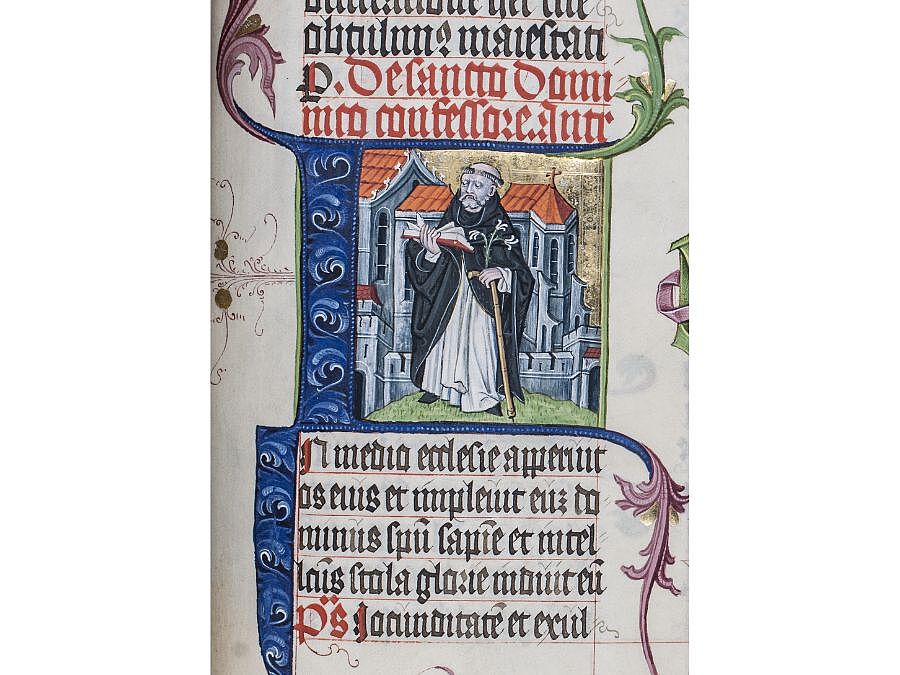 hec tue
obtulimꝰ maiestati
P. De sancto Domi
nico confessore. Intr
In medio ecclesie apperuit
os eius et impleuit euʒ do
minus spū sapīe et intel
lcūs stola glorie induit eū
Ps Iocunditatē et exul